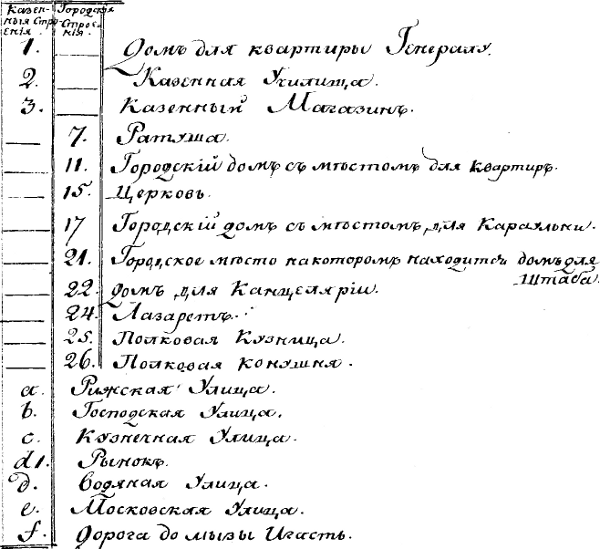 Казен-
ныя Стро-
енія.
Городскія
Строе-
нія.
1. Домъ для квартиры Генералу.
2. Казенная Училища.
3. Казенный Магазинъ.
7. Ратуша.
11. Городскій домъ съ мѣстомъ для квартиръ.
15. Церковь.
17 Городскій домъ съ мѣстомъ для Караульни.
21. Городское мѣсто на которомъ находится домъ для
Штаба.
22. Домъ для Канцеляріи.
24. Лазаретъ.
25. Полковая Кузница.
26. Полковая конушня.
a. Рижская Улица.
b. Господская Улица.
c. Кузнечная Улица.
d1. Рынокъ.
d. Водяная Улица.
e. Московская Улица.
f. Дорога до мызы Игасть.